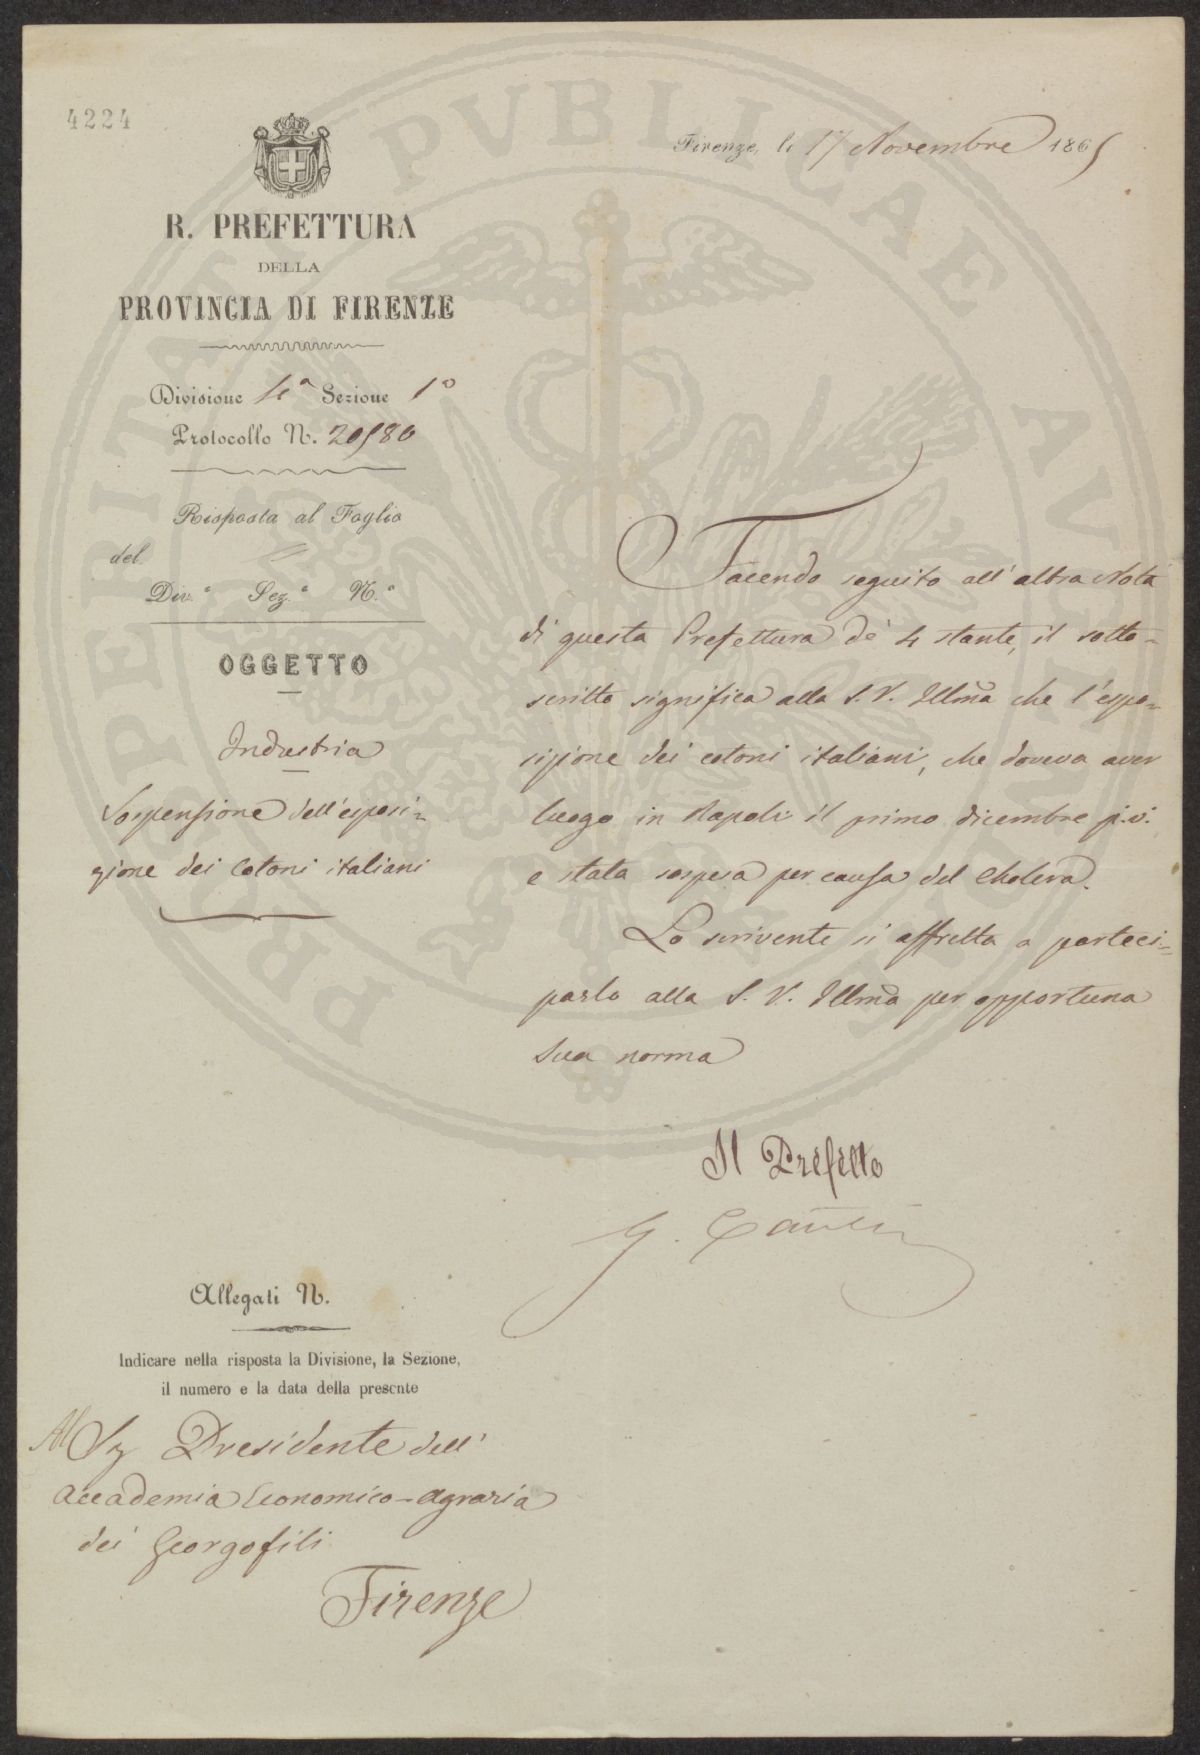 4224
Firenze, li 17 Novembre 1865
R. PREFETTURA
DELLA
PROVINCIA DI FIRENZE
Divisione 4ª Sezione 1ª
Protocollo N. 20580
Risposta al Foglio
del
Div.ᵉ Sez.ᵉ N.º
OGGETTO
Industria
Sospensione dell'esposi-
zione dei Cotoni italiani
Facendo seguito all'altra Nota
di questa Prefettura de' 4 stante, il sotto-
scritto significa alla S. V. Illma che l'espo-
sizione dei cotoni italiani, che doveva aver
luogo in Napoli il primo dicembre p.v.
e stata sospesa per causa del Cholera.
Lo scrivente si affretta a parteci-
parlo alla S. V. Illma per opportuna
sua norma
Il Prefetto
G. Cantelli
Allegati N.
Indicare nella risposta la Divisione, la Sezione,
il numero e la data della presente
Al Sig Presidente dell'
Accademia Economico-Agraria
dei Georgofili
Firenze
PROSPERITATI PVBLICAE AVGENDAE